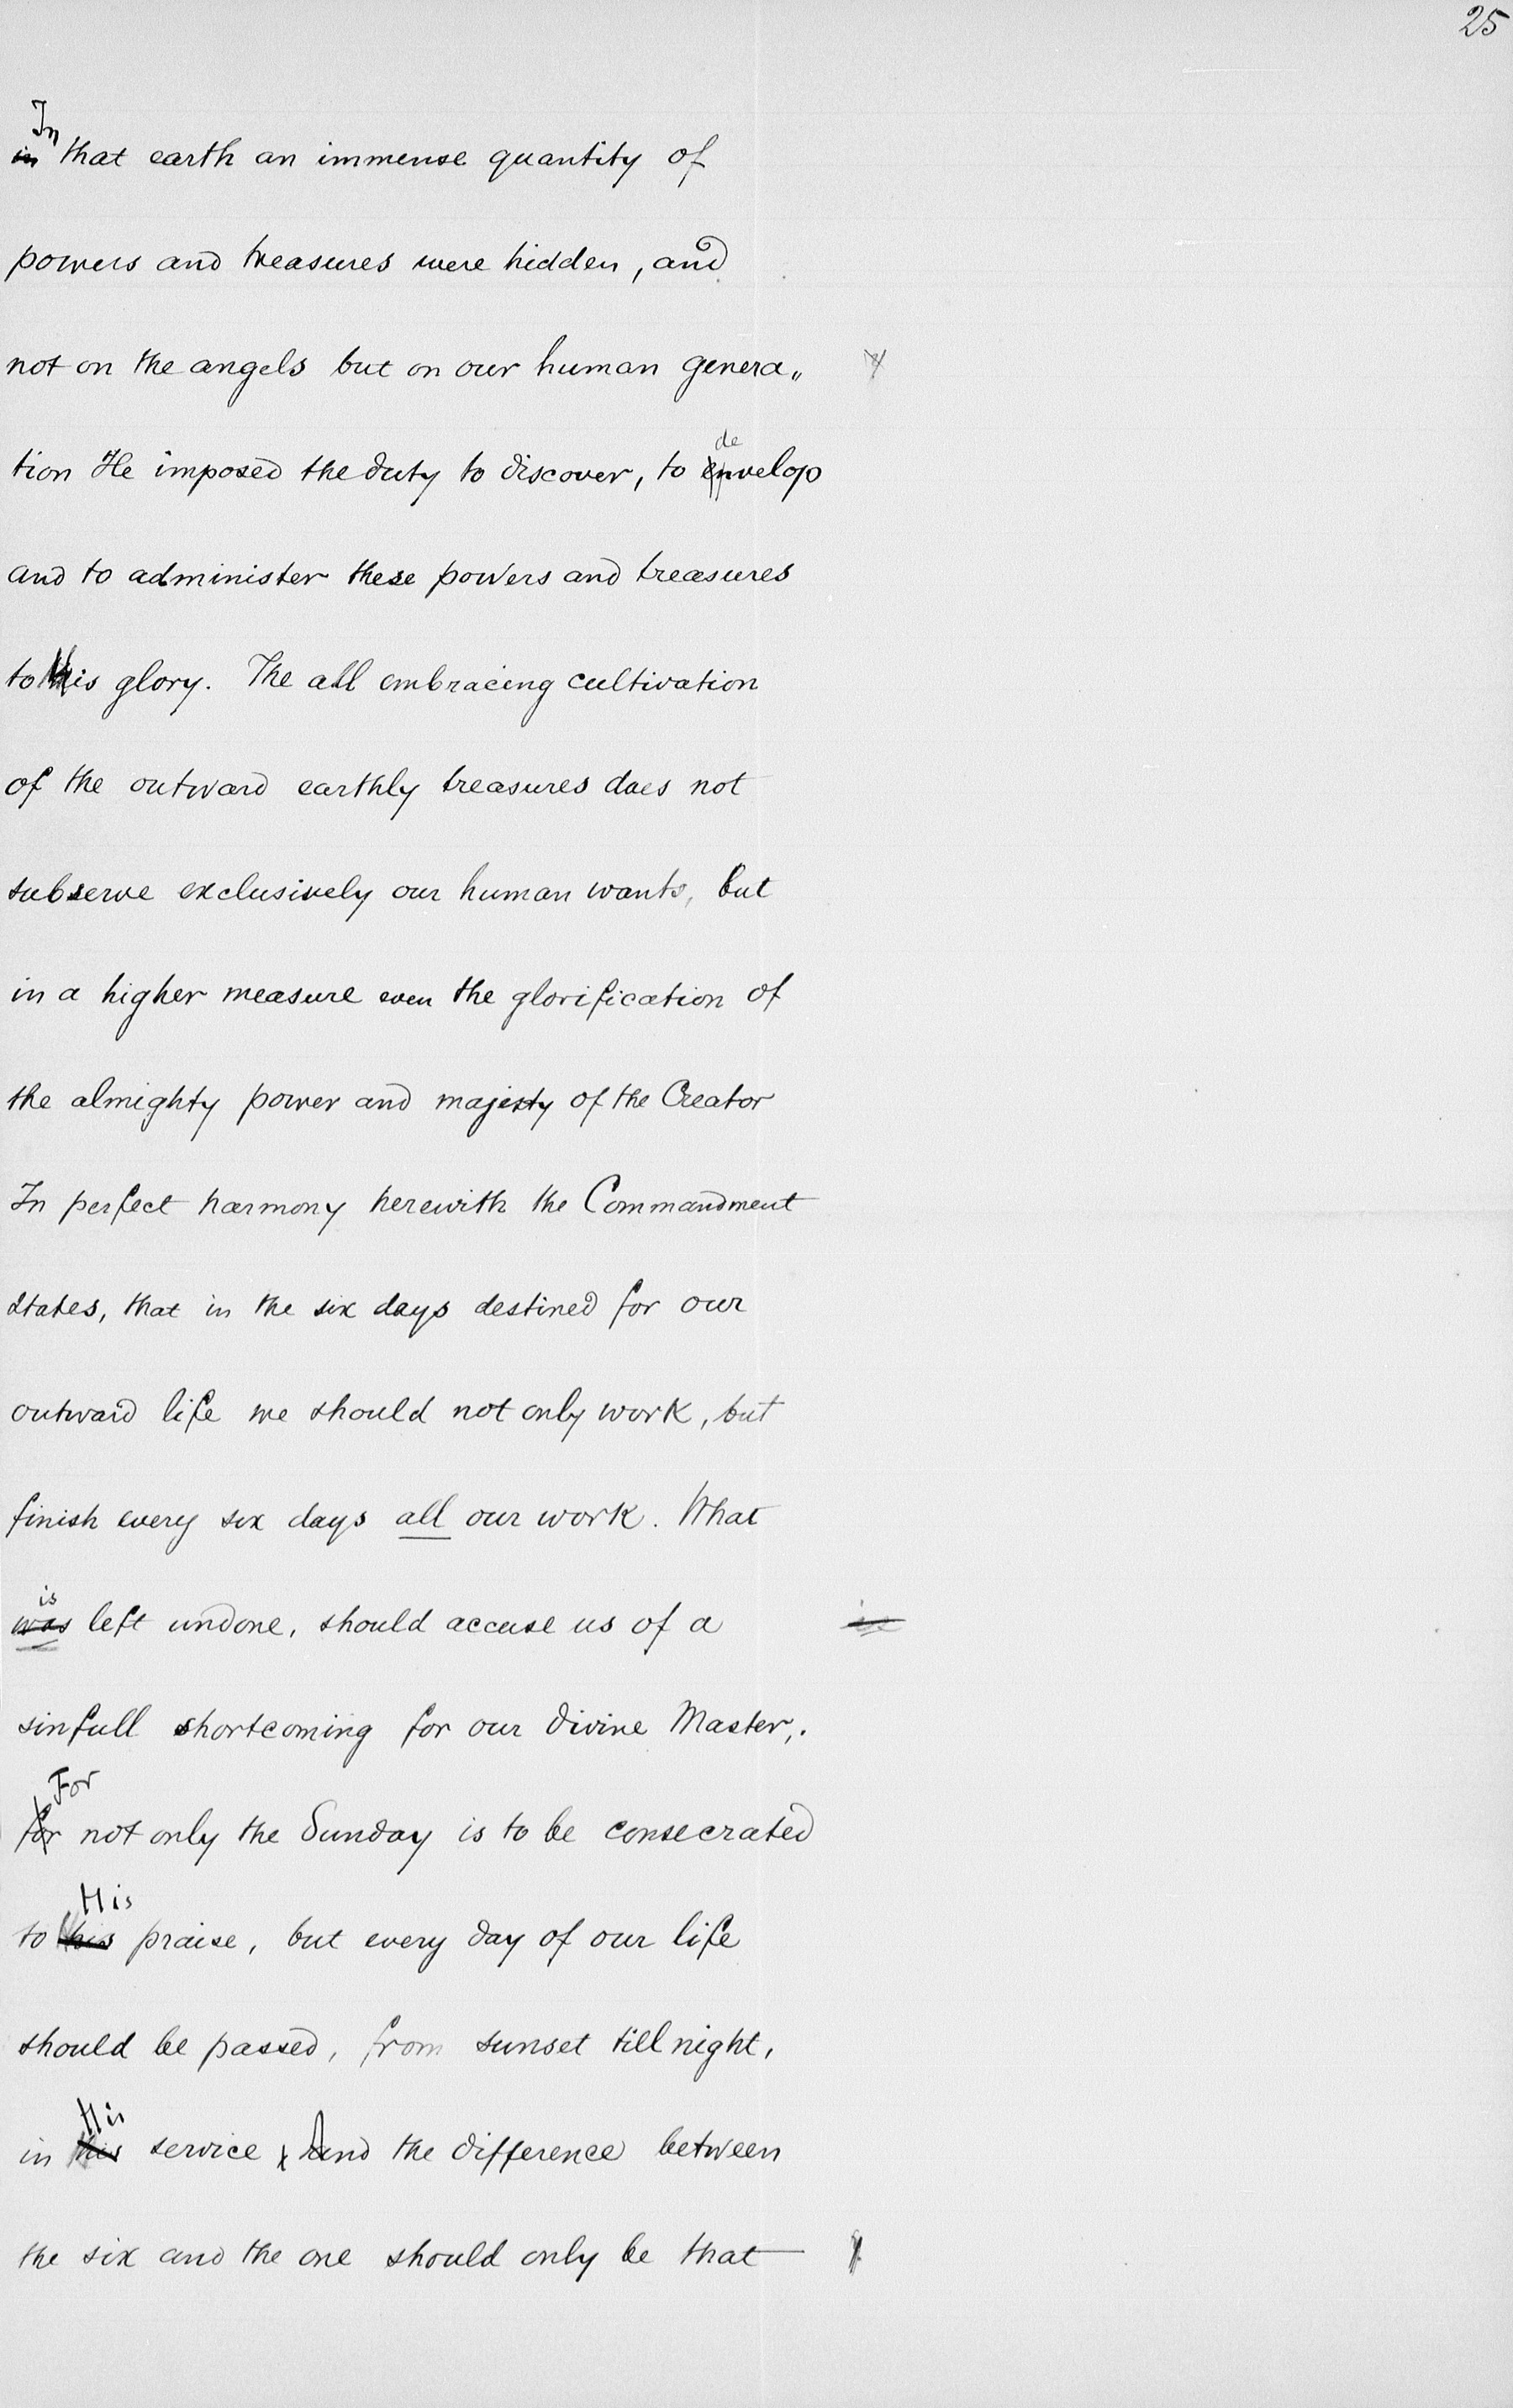 25
In
in that earth an immense quantity of
powers and treasures were hidden, and
not on the angels but on our human genera„
de
tion He imposed the duty to discover, to envelop
and to administer these powers and treasures
to His glory. The all embracing cultivation
of the outward earthly treasures does not
subserve exclusively our human wants, but
in a higher measure even the glorification of
the almighty power and majesty of the Creator
In perfect harmony herewith the Commandment
states, that in the six days destined for our
outward life we should not only work, but
finish every six days all our work. What
is
was left undone, should accuse us of a
sinfull shortcoming for our divine Master,.
For
for not only the Sunday is to be consecrated
His
to his praise, but every day of our life
should be passed, from sunset till night,
His
in his service, And the difference between
the six and the one should only be that